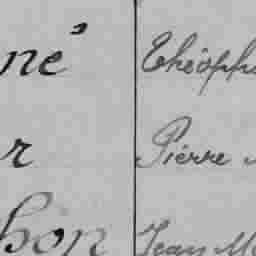 né Théoph
r Pierre
hon Jean M